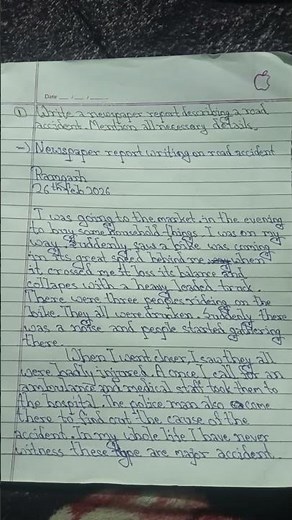 Date __/__/__
① Write a newspaper report describing a road
accident. Mention all necessary details.
→ Newspaper report writing on road accident
Ramgarh
26th Feb 2026
I was going to the market in the evening
to buy some household things. I was on my
way. Suddenly saw a bike was coming
in its great speed behind me when
it crossed me it loss its balance and
collapes with a heavy leaded truck.
There were three peoples rideing on the
bike. They all were drunken. Suddenly there
was a noise and people started gathering
there.
When I went closer I saw they all
were badly injured. A once I call for an
ambulance and medical staff took them to
the hospital. The police man also come
there to find out the cause of the
accident. In my whole life I have never
witness these type are major accident.